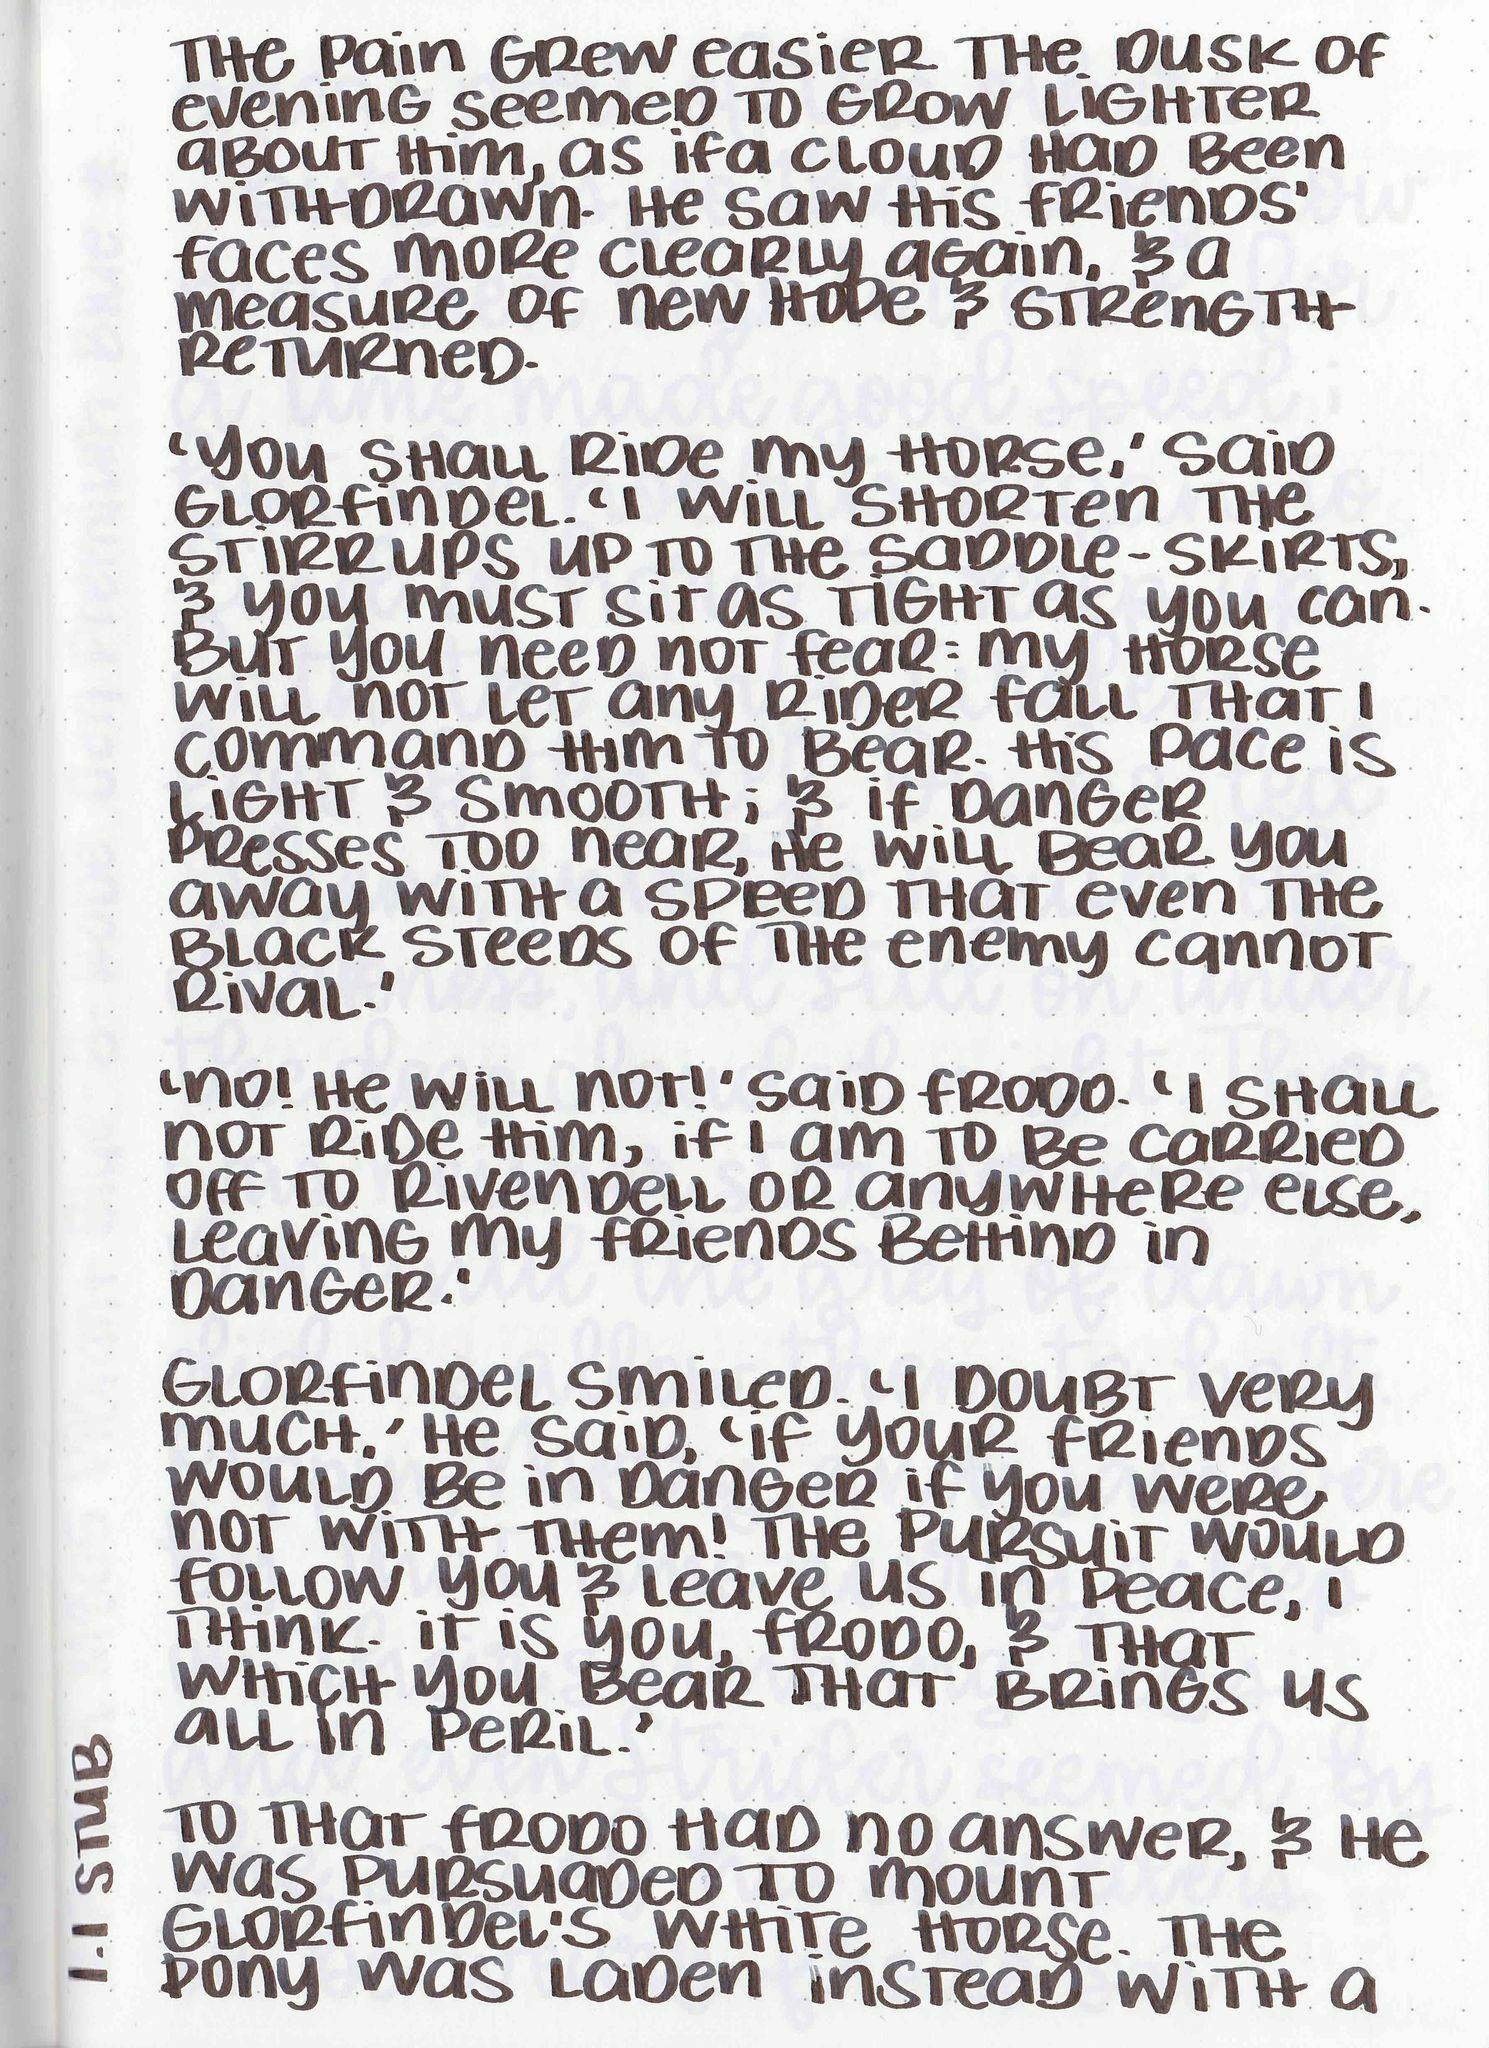 The pain grew easier The dusk of
evening seemed to grow lighter
about him, as if a cloud had been
withdrawn. He saw his friends'
faces more clearly again, & a
measure of new hope & strength
returned.
'You shall ride my horse,' said
Glorfindel. 'I will shorten the
stirrups up to the saddle-skirts,
& you must sit as tight as you can.
But you need not fear: my horse
will not let any rider fall that I
command him to bear. His pace is
light & smooth; & if danger
presses too near, he will bear you
away with a speed that even the
black steeds of the enemy cannot
rival.'
'No! He will not!' said Frodo. 'I shall
not ride him, if I am to be carried
off to Rivendell or anywhere else,
leaving my friends behind in
danger.'
Glorfindel smiled. 'I doubt very
much,' he said, 'if your friends
would be in danger if you were
not with them! The pursuit would
follow you & leave us in peace, I
think. It is you, Frodo, & that
which you bear that brings us
all in peril.'
To that Frodo had no answer, & he
was pursuaded to mount
Glorfindel's white horse. The
pony was laden instead with a
1.1 STUB